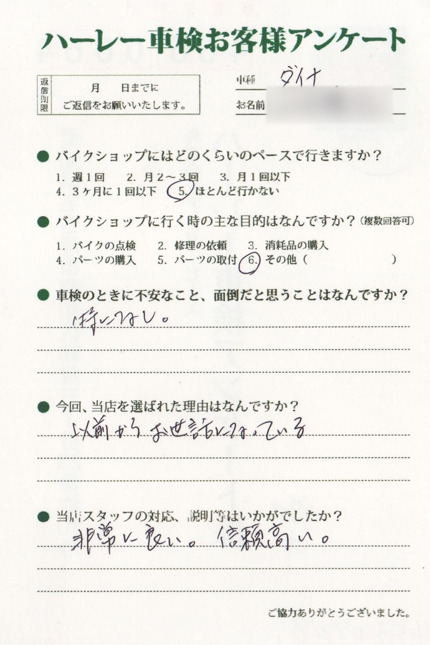 ハーレー車検お客様アンケート
返信期限
月　日までに
ご返信をお願いいたします。
車種 ダイナ
お名前
● バイクショップにはどのくらいのペースで行きますか？
1. 週1回　2. 月2～3回　3. 月1回以下
4. 3ヶ月に1回以下　5. ほとんど行かない
● バイクショップに行く時の主な目的はなんですか？（複数回答可）
1. バイクの点検　2. 修理の依頼　3. 消耗品の購入
4. パーツの購入　5. パーツの取付　6. その他（　　　）
● 車検のときに不安なこと、面倒だと思うことはなんですか？
特になし。
● 今回、当店を選ばれた理由はなんですか？
以前からお世話になっている
● 当店スタッフの対応、説明等はいかがでしたか？
非常に良い。信頼高い。
ご協力ありがとうございました。